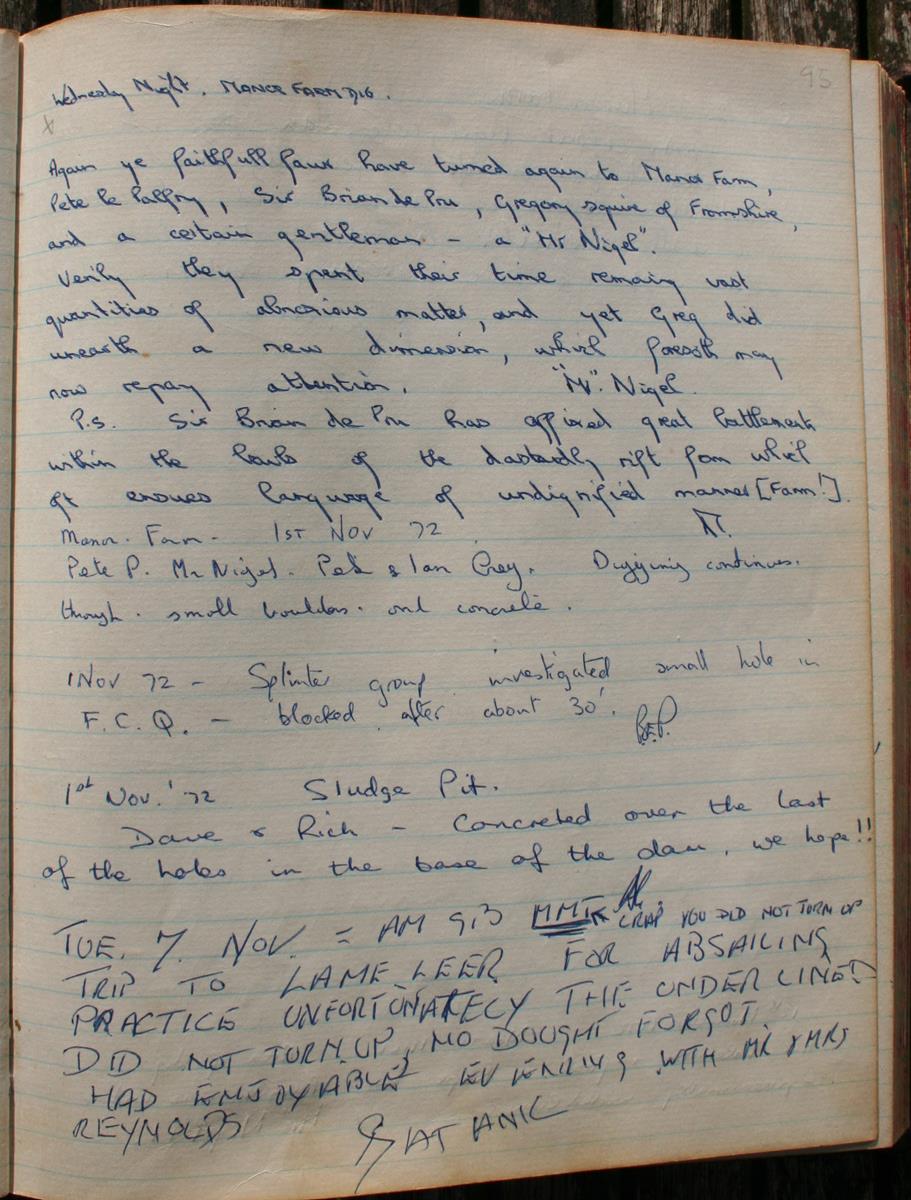 95
Wednesday Night. MANOR FARM DIG.
Again ye faithfull four have turned again to Manor Farm,
Pete le Palfry, Sir Brian de Pru, Gregory squire of Fromshire,
and a certain gentleman - a "Mr Nigel".
Verily they spent their time remaing vast
quantities of abnoxious matter, and yet Greg did
unearth a new dimension, which forsoth may
now repay attention. "Mr". Nigel.
P.s. Sir Brian de Pru has offired great battlements
within the bowls of the dastardly rift from which
oft ensues language of undignified manner [Farm!].
N.
Manor. Farm - 1ST NOV 72.
Pete P. Mr Nigel. Pete & Ian Grey. Digging continues.
through. small boulders. and concrete.
1 Nov 72 - Splinter group investigated small hole in
F.C.Q. - blocked after about 30'.
B.E.P.
1st Nov. '72 Sludge Pit.
Dave & Rich - Concreted over the last
of the holes in the base of the dam, we hope!!
TUE. 7. NOV. = AM 9B MMT CRAP YOU DID NOT TURN UP
TRIP TO LAME LEER FOR ABSAILING
PRACTICE UNFORTUNATELY THE UNDER LINED
DID NOT TURN UP, NO DOUGHT FORGOT
HAD ENJOYABLE EVENING WITH MR & MRS
REYNOLDS
SATANIC